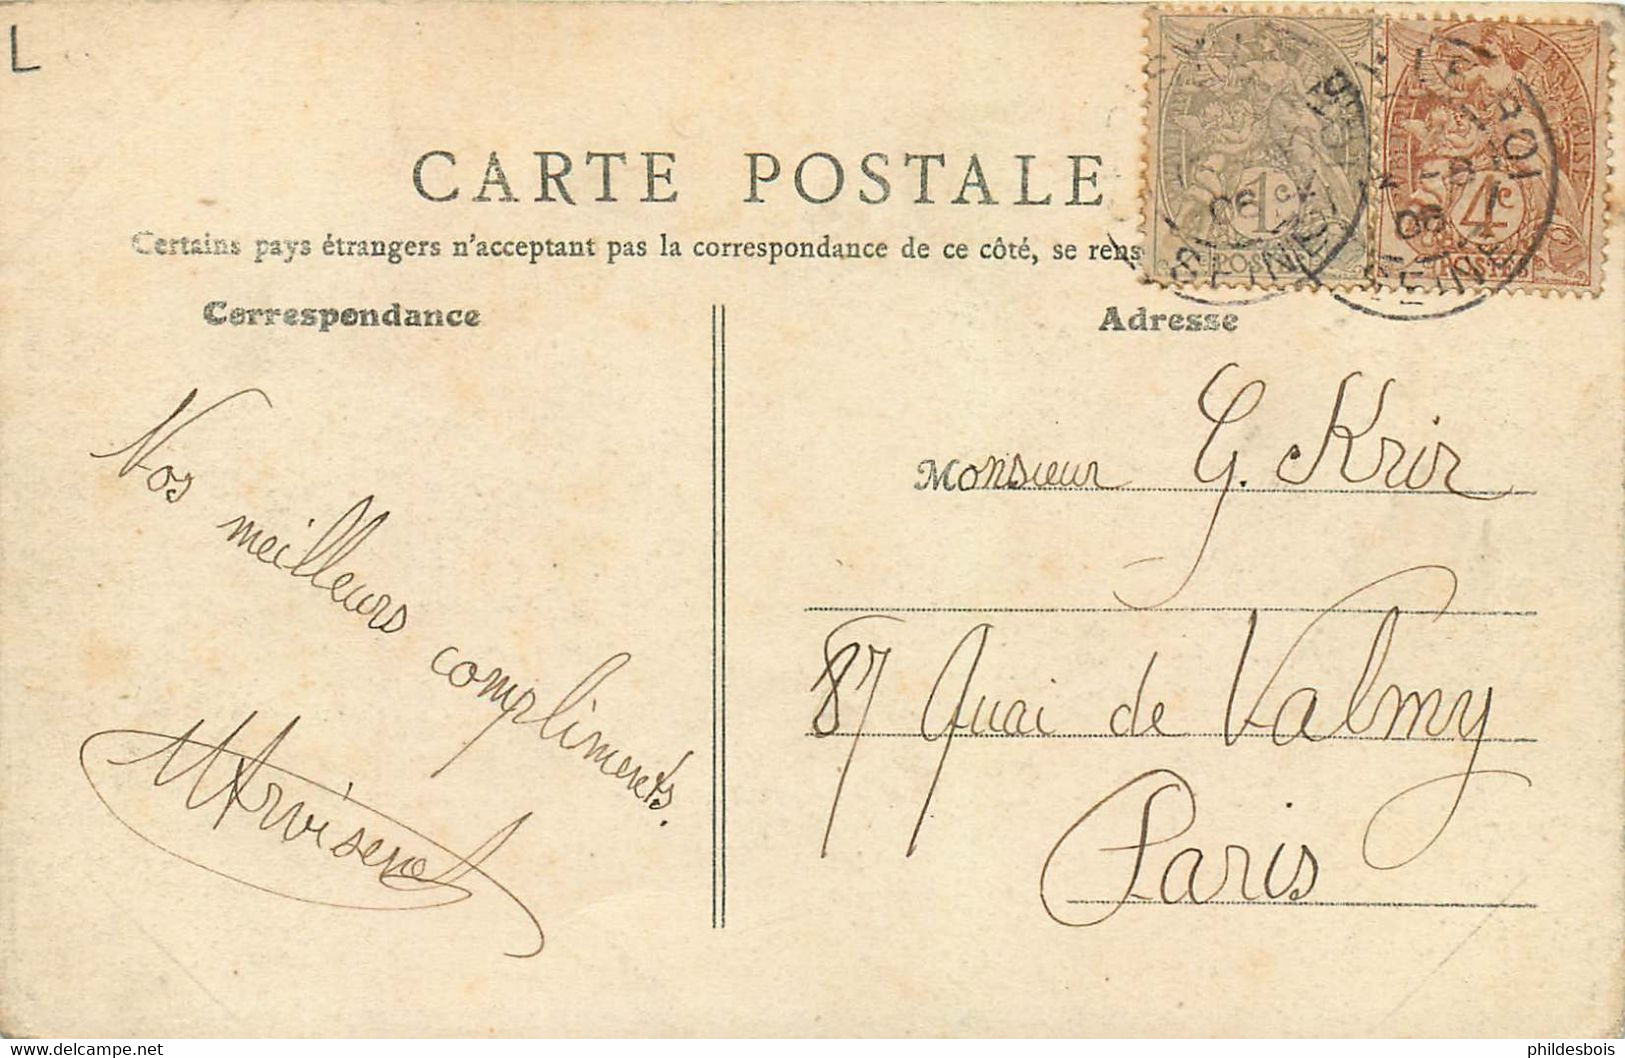 L
CARTE POSTALE
Certains pays étrangers n'acceptant pas la correspondance de ce côté, se rens
Correspondance
Adresse
Nos
meilleurs
compliments.
Monsieur G. Krir
87 Quai de Valmy
Paris
1c
POSTES
4c
POSTES
06
06
phildesbois